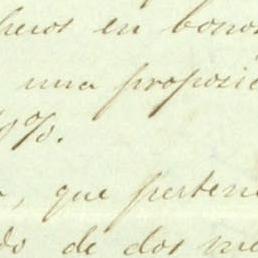 heros en bonos
una proposic
0%.
, que perten
do de dos me